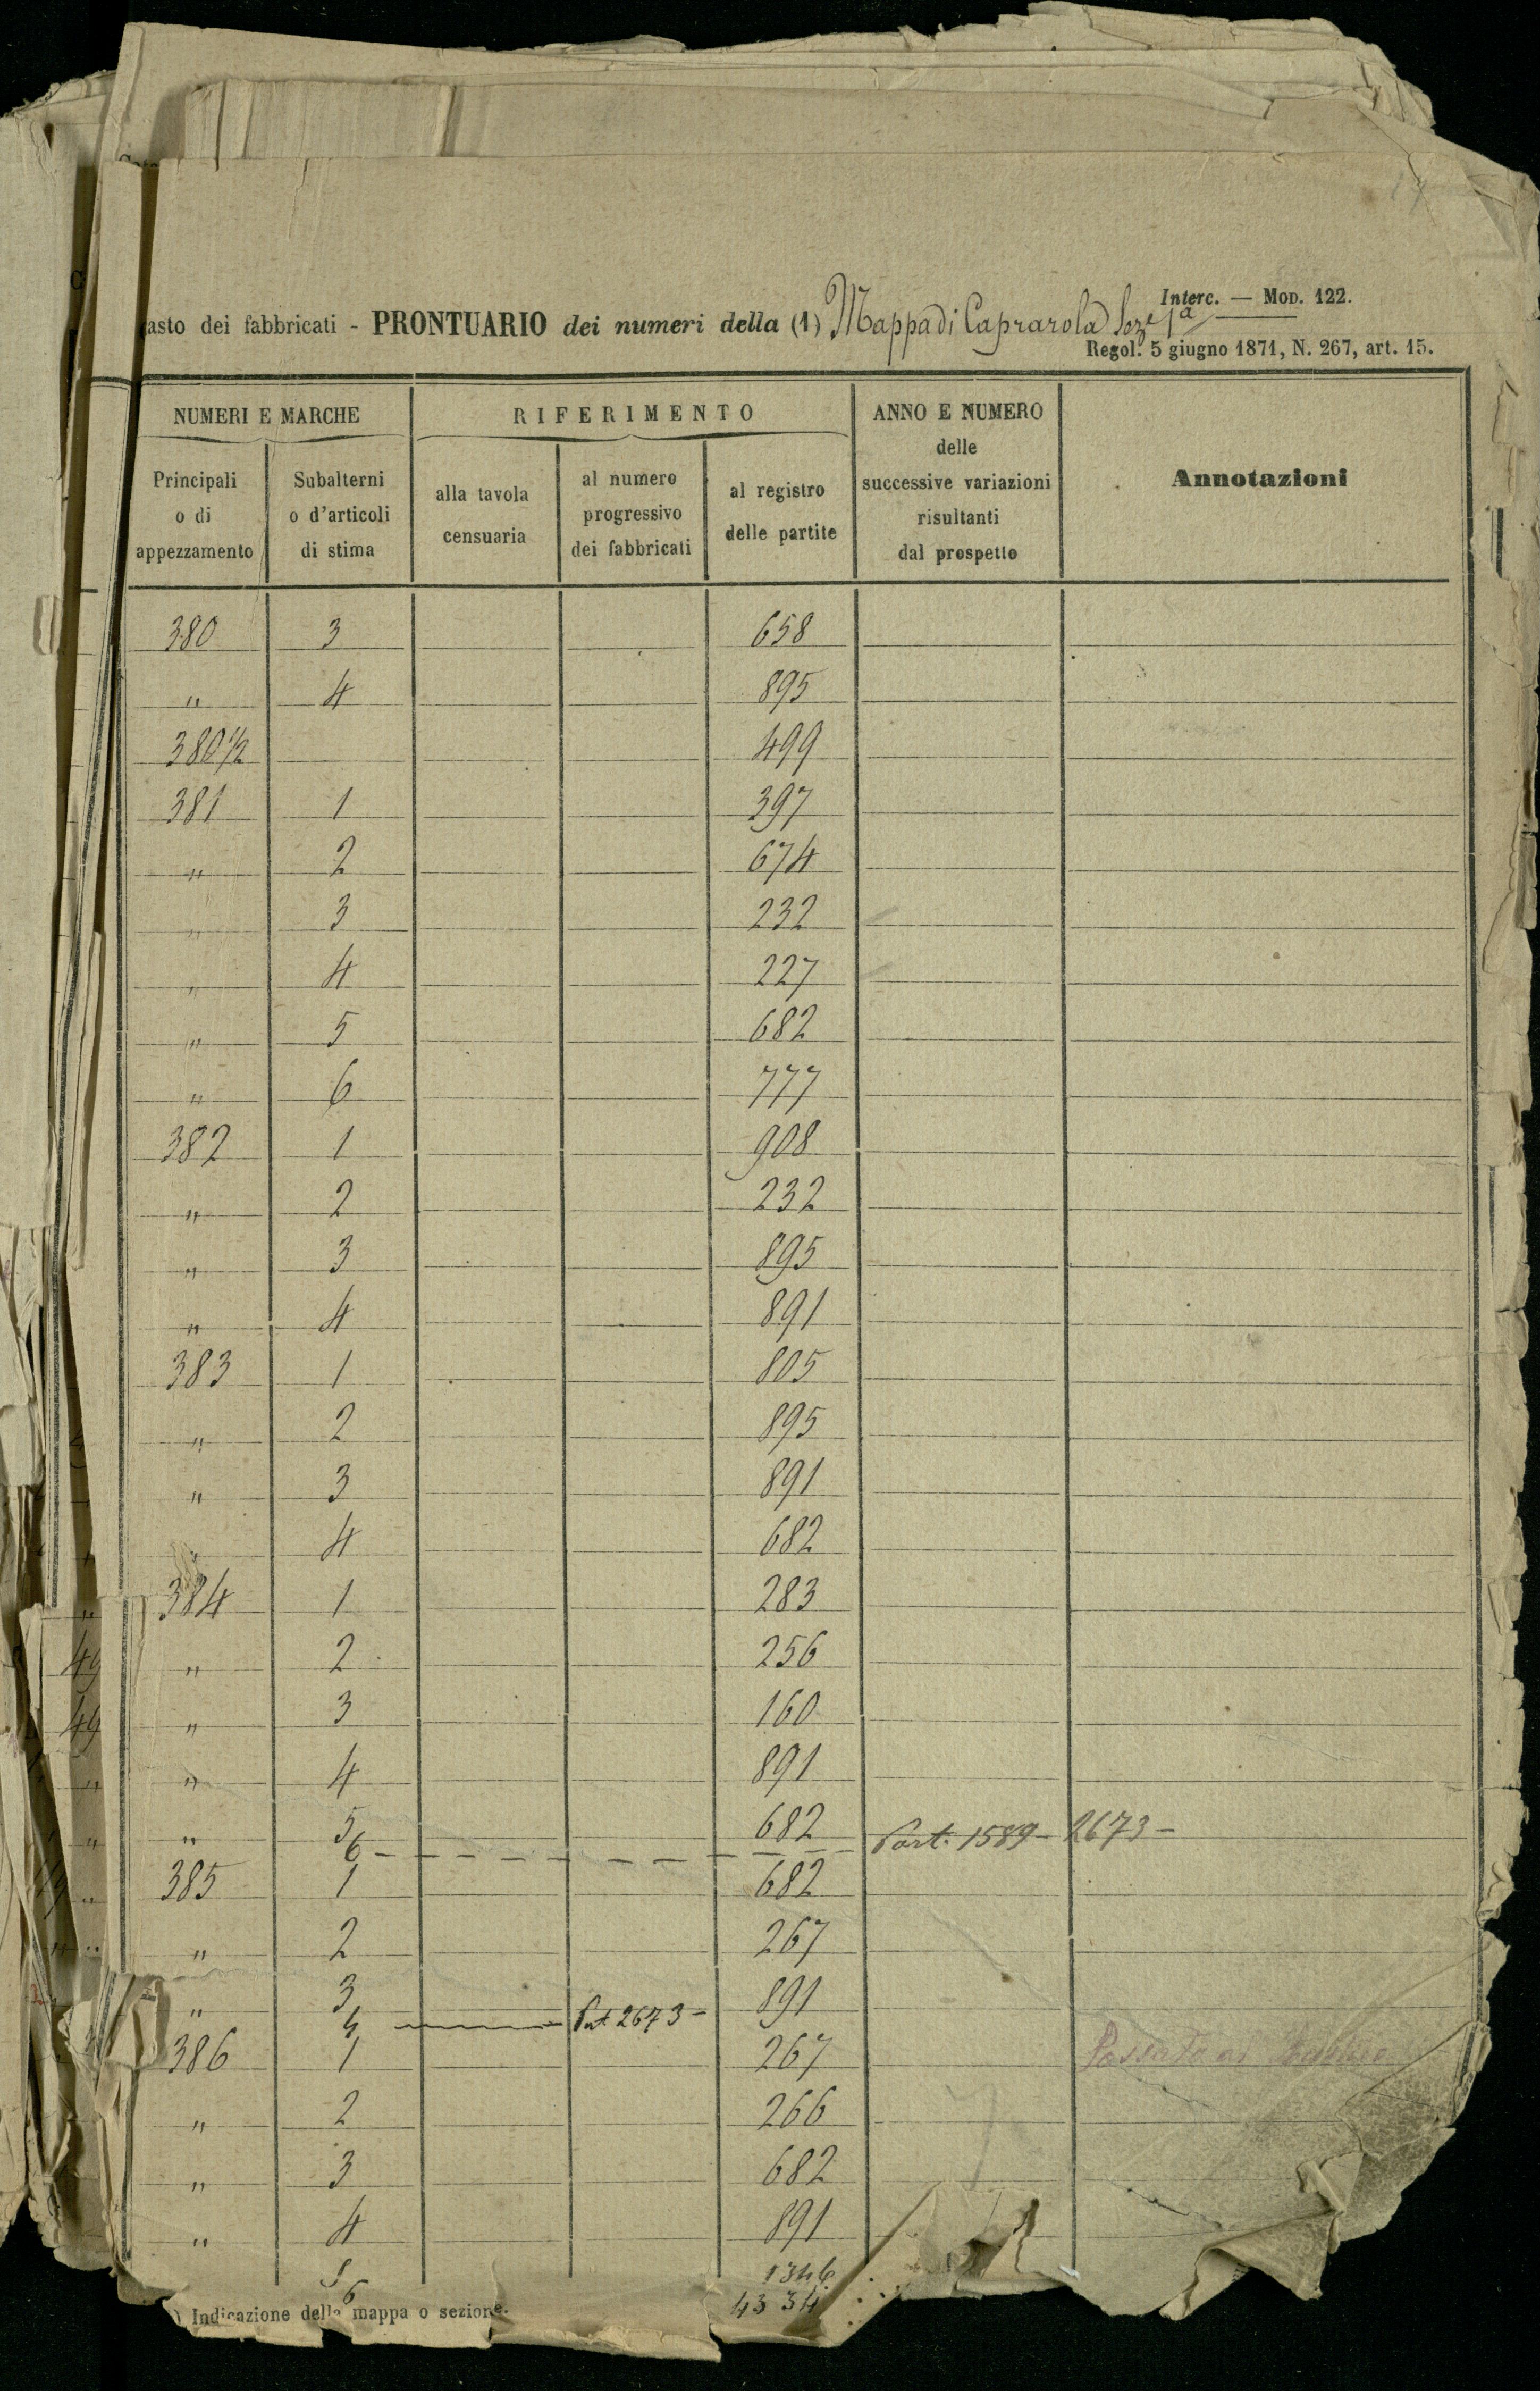 Interc. — Mod. 122.
asto dei fabbricati - PRONTUARIO dei numeri della (1) Mappa di Caprarola Seze 1a
Regol. 5 giugno 1871, N. 267, art. 15.
NUMERI E MARCHE RIFERIMENTO ANNO E NUMERO delle successive variazioni risultanti dal prospetto Annotazioni
Principali o di appezzamento Subalterni o d'articoli di stima alla tavola censuaria al numero progressivo dei fabbricati al registro delle partite
380 3 658
" 4 895
380 1/2 499
381 1 397
" 2 674
" 3 232
" 4 227
" 5 682
" 6 777
382 1 908
" 2 232
" 3 895
" 4 891
383 1 805
" 2 895
" 3 891
" 4 682
384 1 283
" 2 256
" 3 160
" 4 891
" 5 682
6 Part. 1589 - 2673 -
385 1 682
" 2 267
" 3 891
4 Pat 2673 -
386 1 267
" 2 266
" 3 682
" 4 891
5 1346
6 4334
) Indicazione della mappa o sezione.